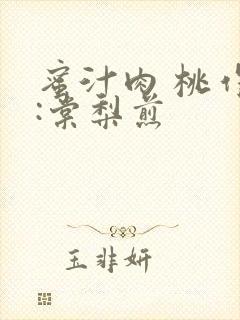 蜜汁肉桃 作
:棠梨煎
玉非妍